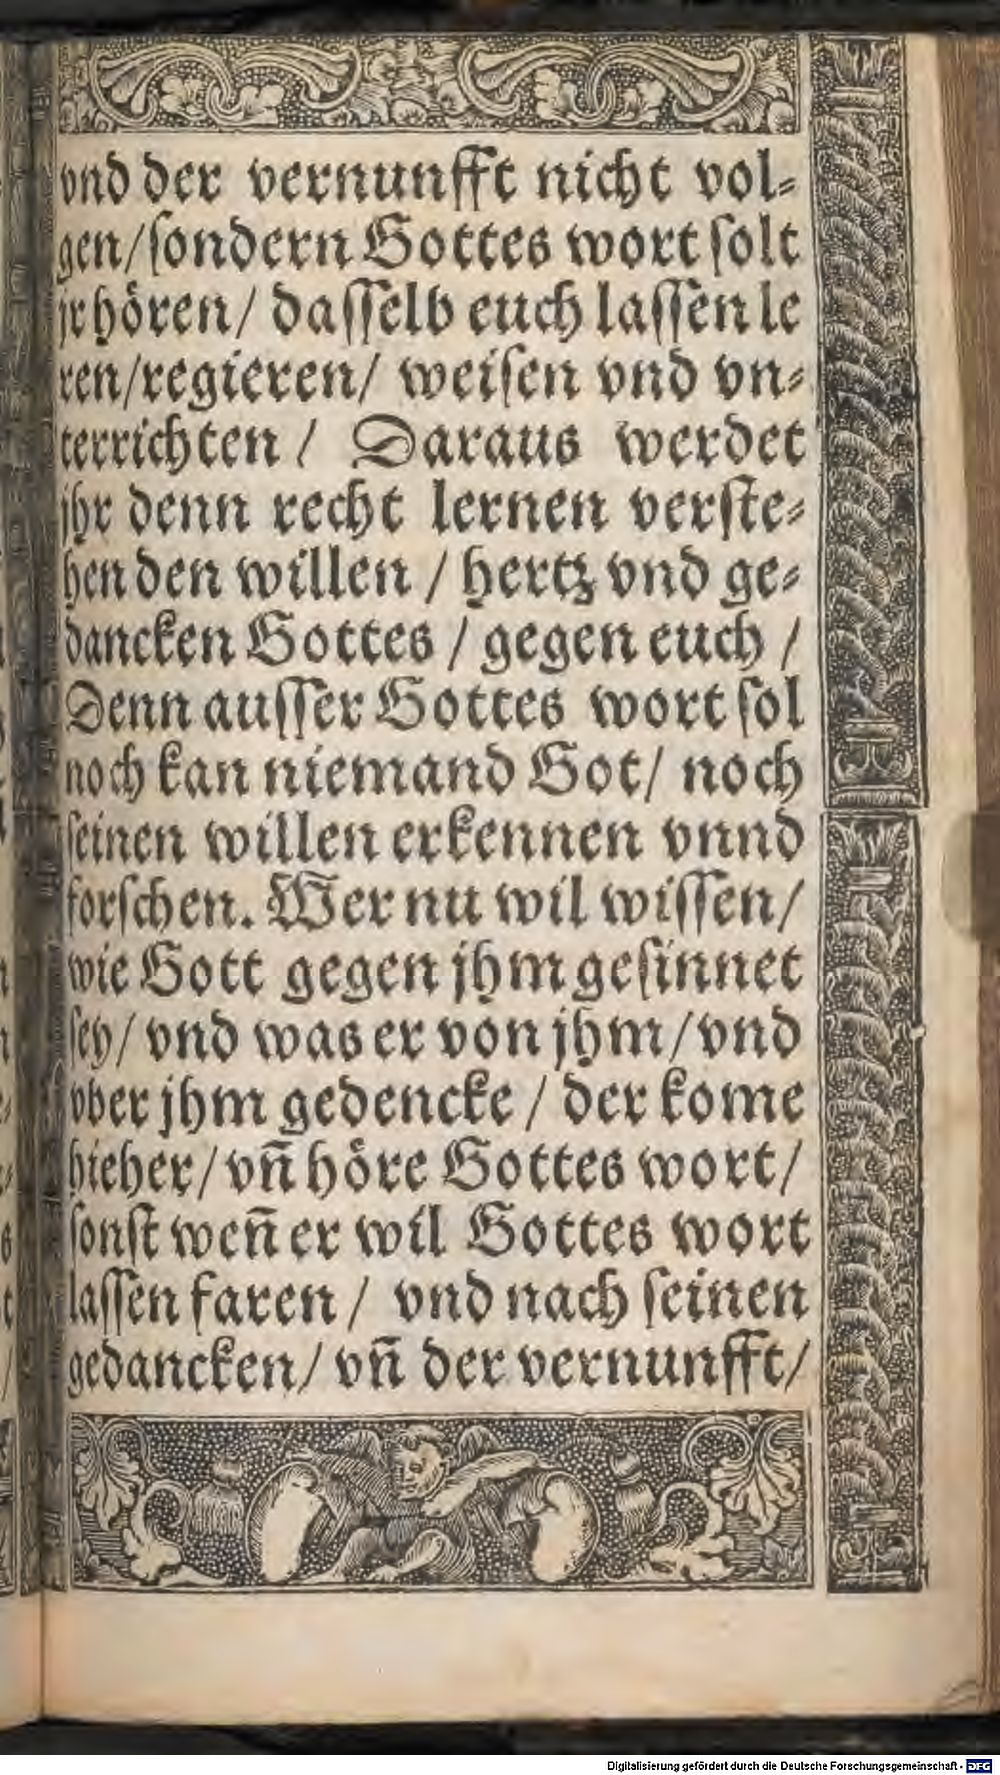 vnd der vernunfft nicht vol⸗
gen/ſondern Gottes wort ſolt
jr hören/ daſſelb euch laſſen le
ren/regieren/ weiſen vnd vn⸗
terrichten / Daraus werdet
jhr denn recht lernen verſte⸗
hen den willen / hertz vnd ge⸗
dancken Gottes / gegen euch /
Denn auſſer Gottes wort ſol
noch kan niemand Got/ noch
ſeinen willen erkennen vnnd
forſchen. Wer nu wil wiſſen/
wie Gott gegen jhm geſinnet
ſey/ vnd was er von jhm/vnd
vber jhm gedencke / der kome
hieher/ vñ höre Gottes wort/
ſonſt weñ er wil Gottes wort
laſſen faren / vnd nach ſeinen
gedancken/ vñ der vernunfft/
Digitalisierung gefördert durch die Deutsche Forschungsgemeinschaft - DFG